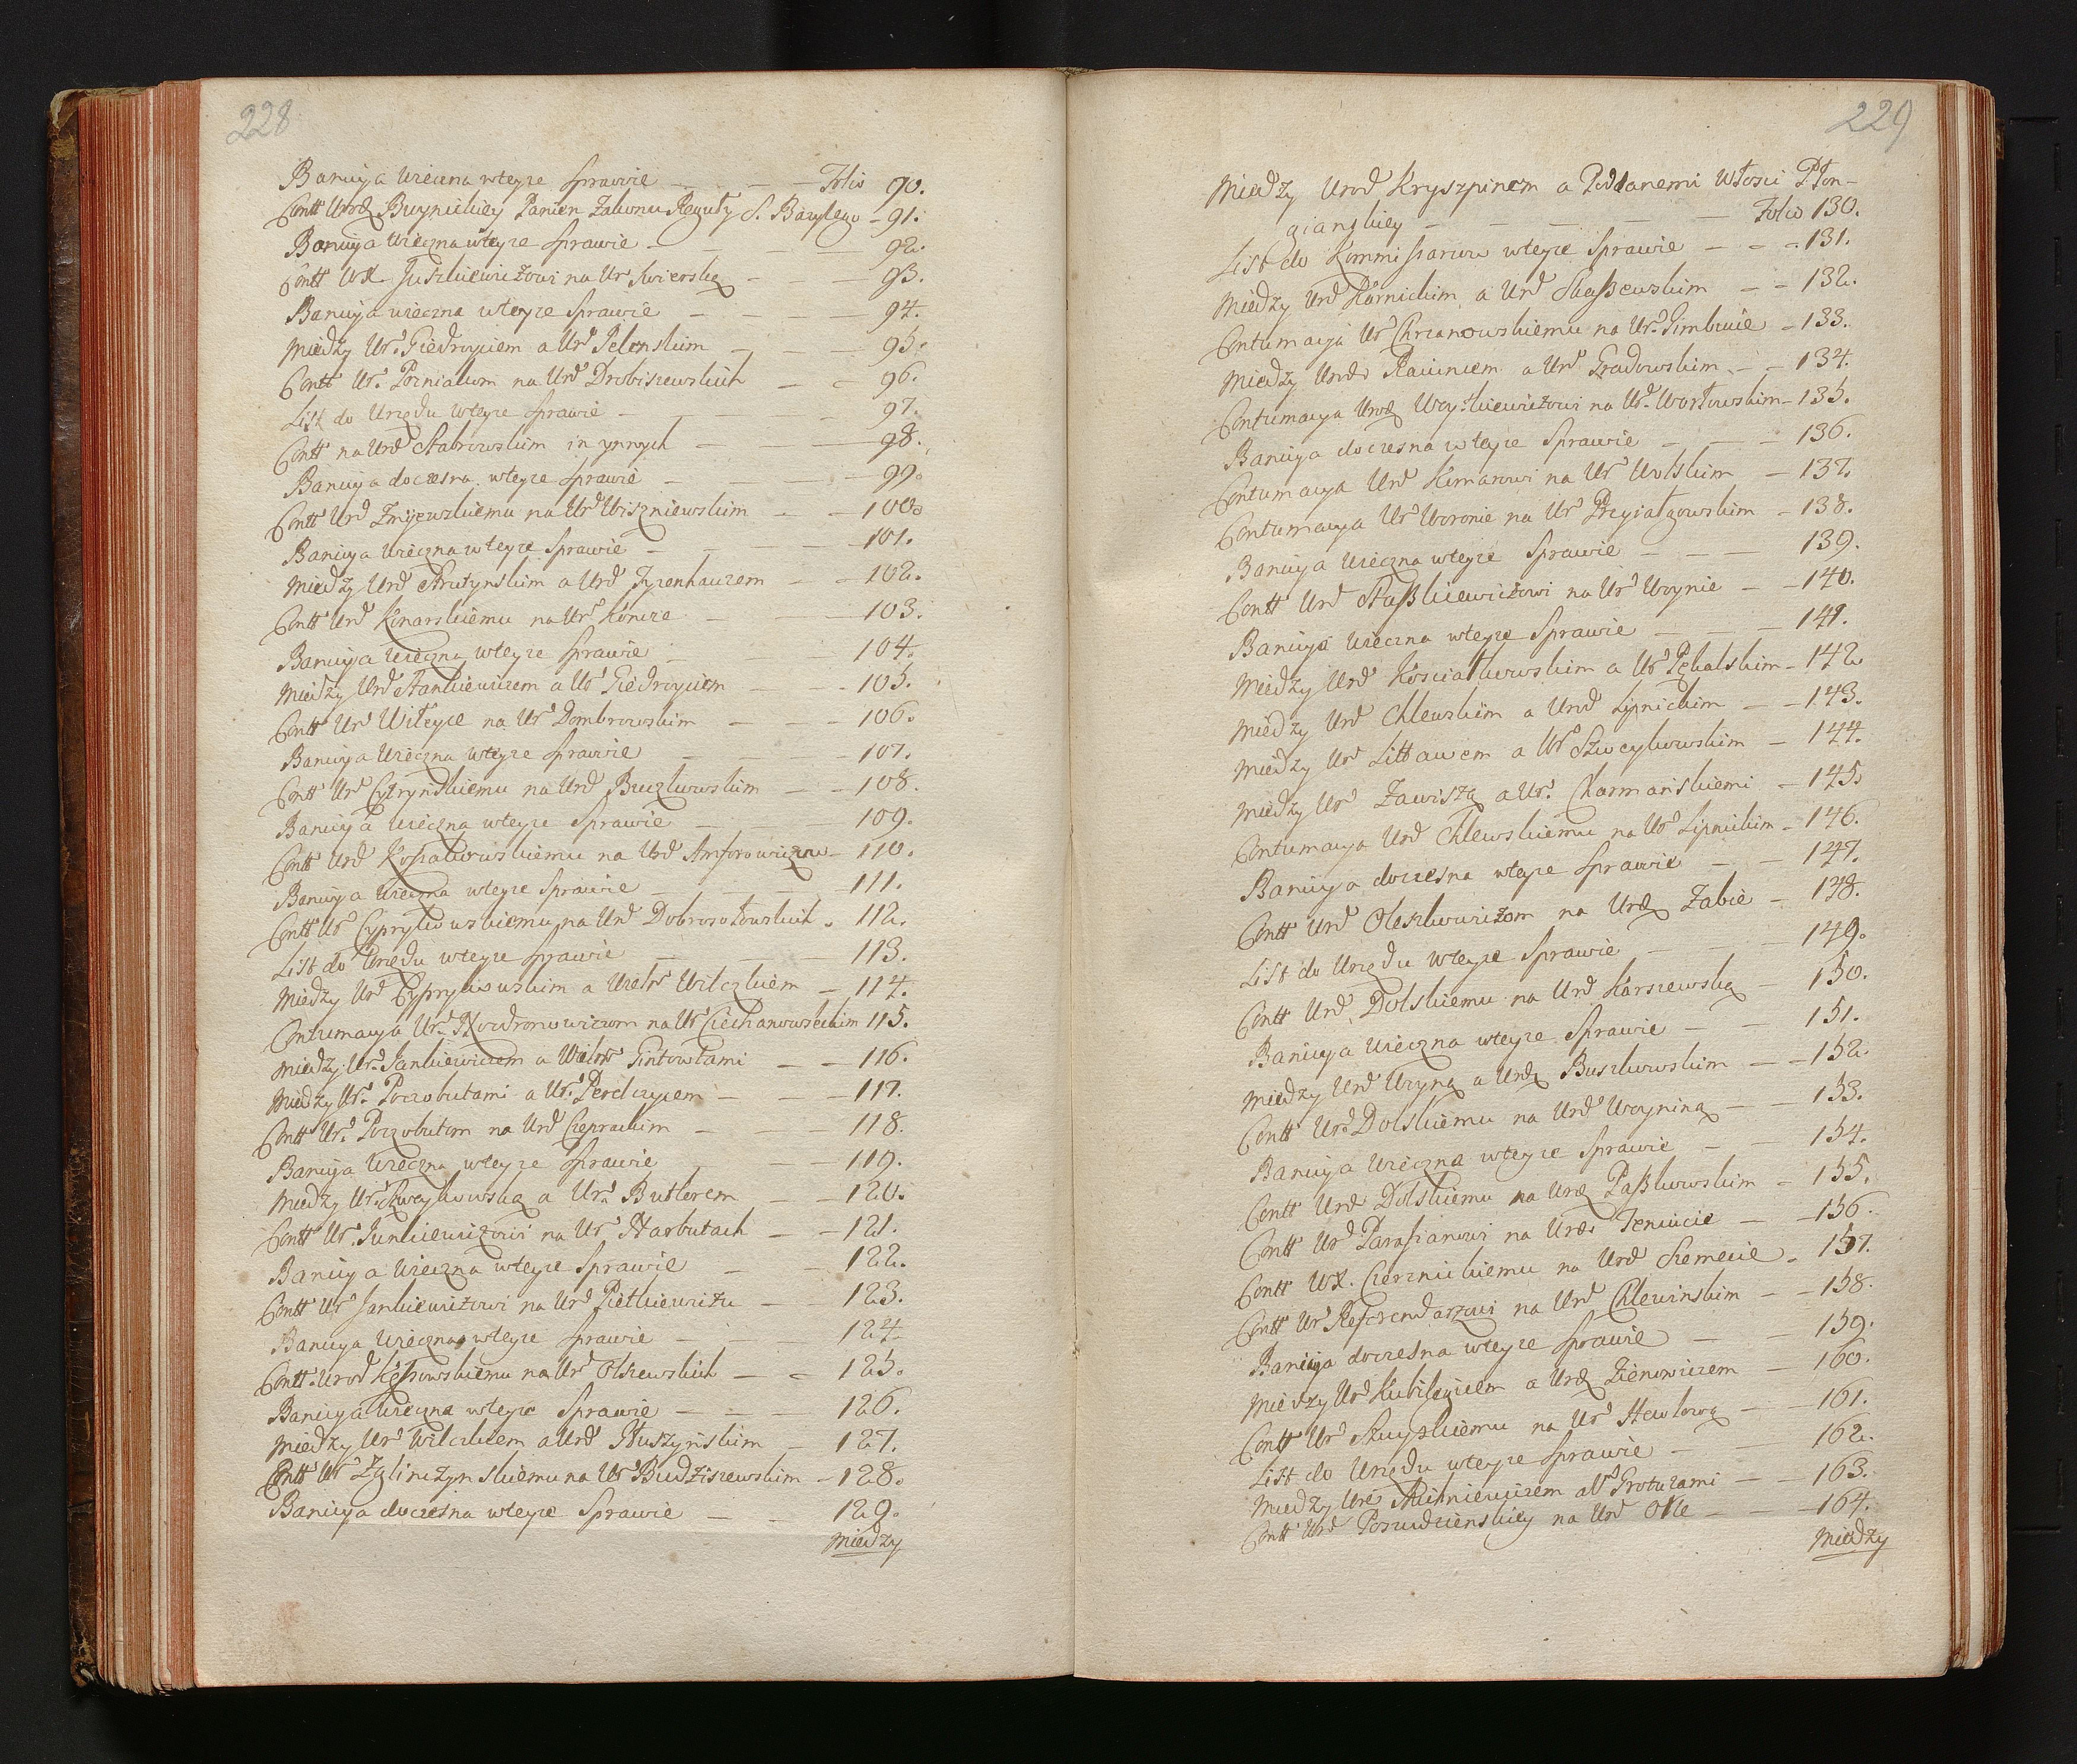 228
Banicya wieczna wteyze Sprawie — — — Folio 90.
Contt Urodz Buynickiey Panien Zakonu Reguły S. Bazylego – 91.
Banicya wieczna wteyze Sprawie — — — 92.
Contt WX Juszkiewiczowi na Ur Swierską — — 93.
Banicya wieczna wteyze Sprawie — — — 94.
Między Ur. Giedroyciem a Urd Jelenskim — — — 95.
Contt Ur. Pozniakom na Urd Drobiszewskich — — 96.
List do Urzędu wteyze Sprawie — — — 97.
Contt na Urd Stabrowskim in ynnych — — 98.
Banicya doczesna wteyze Sprawie — — — 99.
Contt Urd Zmijewskiemu na Urd Wiszniewskim — — 100.
Banicya wieczna wteyze Sprawie — — — 101.
Między Urd Strutynskim a Urd Tyzenhauzem — — 102.
Contt Urd Konarskiemu na Urd Koncze — — 103.
Banicya wieczna wteyze Sprawie — — 104.
Między Urd Stankiewiczem a Ur Giedroyciem — — 105.
Contt Urd Witeyce na Urd Dombrowskim — — 106.
Banicya wieczna wteyze Sprawie — — — 107.
Contt Urd Cytrynskiemu na Urd Buczkowskim — — 108.
Banicya wieczna wteyze Sprawie — — — 109.
Contt Urd Kossakowskiemu na Urd Amforowiczu – 110.
Banicya wieczna wteyze Sprawie — — — 111.
Contt Ur Cyprykowskiemu na Urd Dobrosołowskich – 112.
List do Urzędu wteyze Sprawie — — — 113.
Między Urd Cyprykowskim a Wielm Wilczkiem – 114.
Contumacya Ur. na Ur Ciechanowieckim 115.
Między Ur. Jankiewiczem a Wielm Gintowtami — — 116.
Między Ur. Poczobutami a Ur. — — — 117.
Contt Ur. Poczobutom na Urd Czeprackim — — 118.
Banicya wieczna wteyze Sprawie — — 119.
Między Ur. Szweykowską a Ur. Butlerem — — 120.
Contt Ur. Junkiewiczowi na Ur Narbutach — — 121.
Banicya wieczna wteyze Sprawie — — 122.
Contt Ur Jankiewiczowi na Urd Pietkiewiczu — 123.
Banicya wieczna wteyze Sprawie — — — 124.
Contt Urod na Urd Olszewskich — — 125.
Banicya wieczna wteyze Sprawie — — — 126.
Między Urd Wilczkiem a Urd Huszynskim — 127.
Contt Ur Zglinczynskiemu na Ur Budziszewskim – 128.
Banicya doczesna wteyze Sprawie — — 129.
Między
229
Między Urod Kryszpinem a Poddanemi Włości Płon-
gianskiey — — — — Folio 130.
List do Kommissarzow wteyze Sprawie — — – 131.
Między Urd Karnickim a Urd Staszewskim — – 132.
Contumacya Ur Chrzanowskiemu na Ur. Gimbucie – 133.
Między Urodz a Urd Gradowskim — – 134.
Contumacya Urodz Woyskiewiczowi na Ur. Worłowskim – 135.
Banicya doczesna wteyze Sprawie — — – 136.
Contumacya Urd Komarowi na Ur Wolskim – 137.
Contumacya Ur Woronie na Ur Przyiałgowskim – 138.
Banicya wieczna wteyze Sprawie — — — 139.
Contt Urd Staszkiewiczowi na Ur Woynie — – 140.
Banicya wieczna wteyze Sprawie — — — 141.
Między Urd Kosciałkowskim a Ur Pękalskim – 142.
Między Urd Chlewskim a Urd Lipnickim — – 143.
Między Ur Littawem a Ur Szweykowskim – 144.
Między Ur Zawiszą a Ur. Charmanskiemi – 145.
Contumacya Urd Chlewskiemu na Ur Lipnickim – 146.
Banicya doczesna wteyze Sprawie — — 147.
Contt Urd Oleszkowiczom na Urodz Zabie – 148.
List do Urzędu wteyze Sprawie — — — 149.
Contt Urd Dolskiemu na Urd Karszewską — 150.
Banicya wieczna wteyze Sprawie — — 151.
Między Urd Woyną a Urodz Buszkowskim — – 152.
Contt Urd Dolskiemu na Urd Woyniną — — 153.
Banicya wieczna wteyze Sprawie — — 154.
Contt Urd Dolskiemu na Urodz Paszkowskim – 155.
Contt Urd Parafianowi na Urodz — – 156.
Contt WX. Czerznickiemu na Urd Siemecie – 157.
Contt Ur Referendarzowi na Urd Chlewinskim — – 158.
Banicya doczesna wteyze Sprawie — — 159.
Między Urd a Urodz Zienowiczem — 160.
Contt Ur na Ur Hewłową — – 161.
List do Urzędu wteyze Sprawie — — 162.
Między Urd a Ur Grotuzami — – 163.
Contt Urd na Urd — – 164.
Między